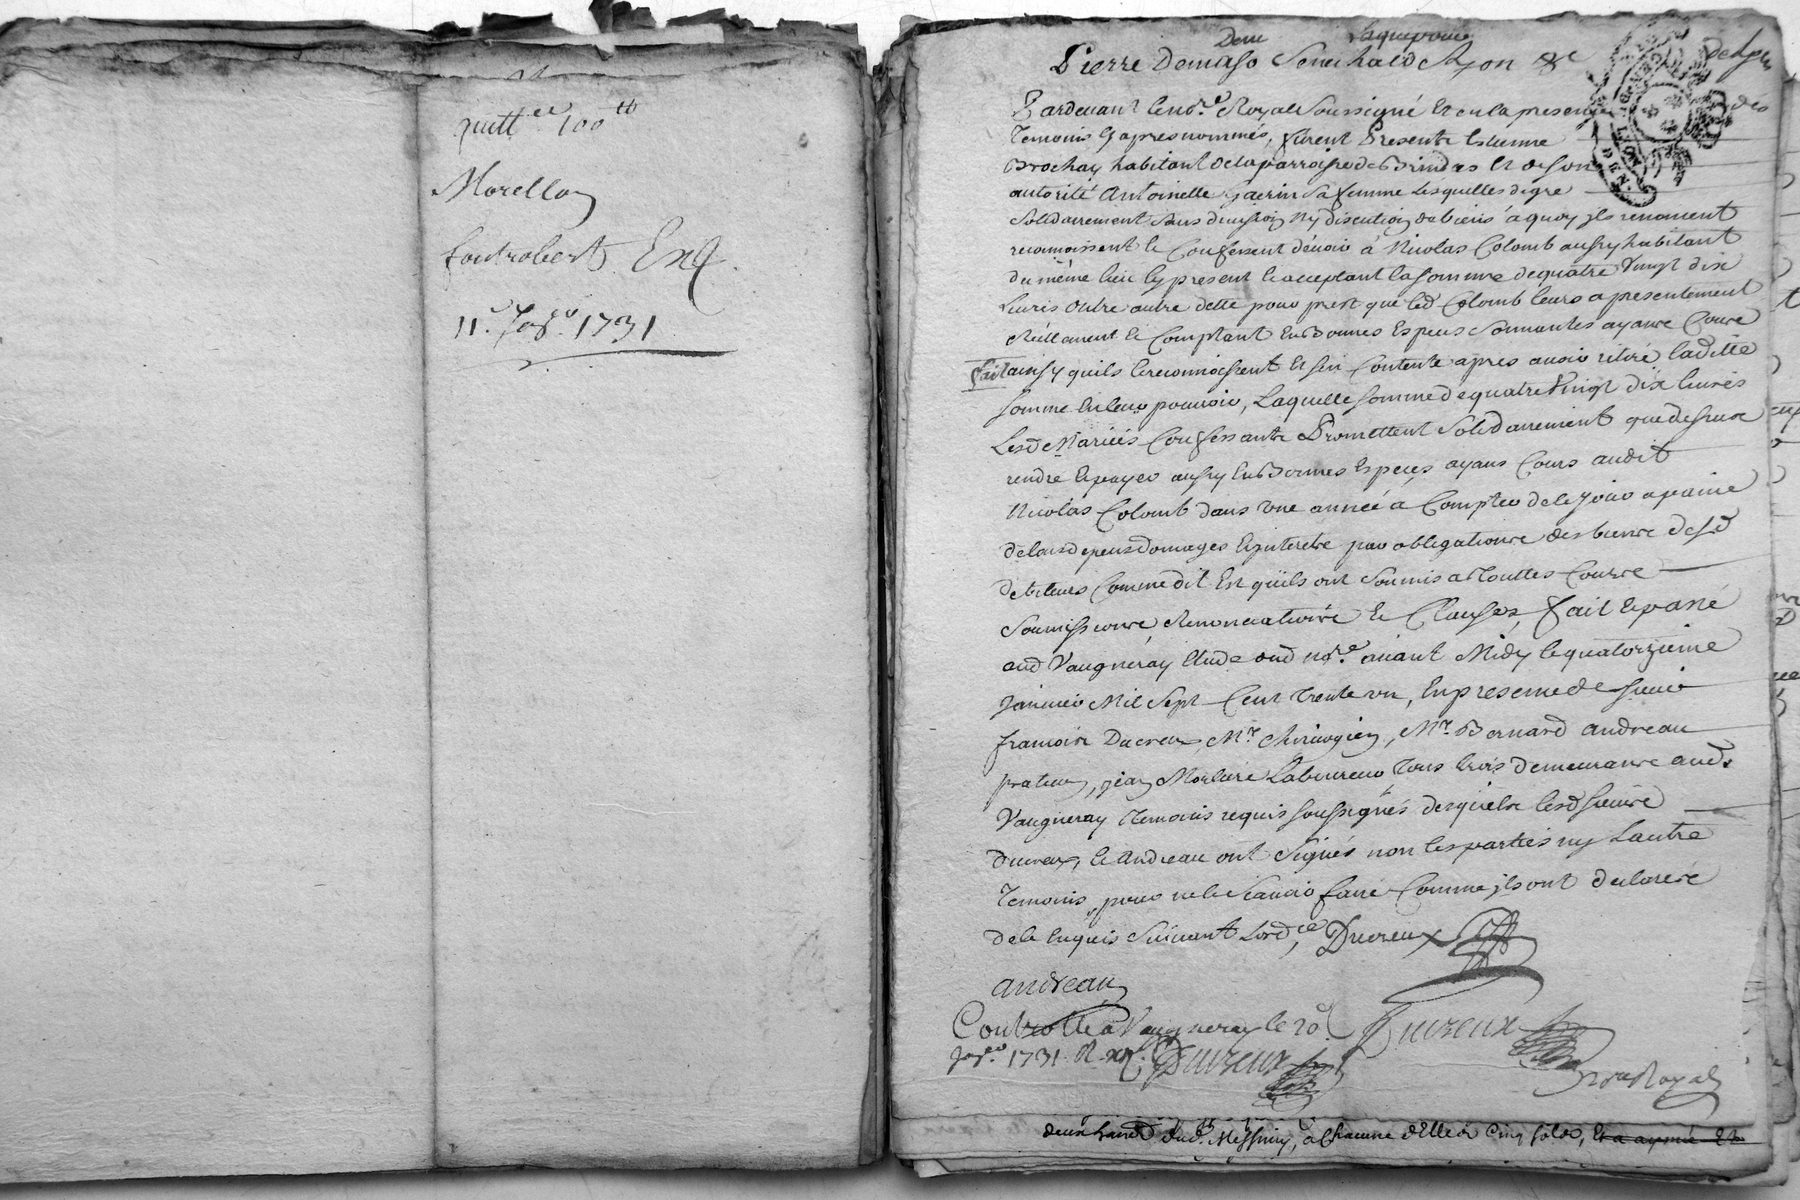 quitt.ce 100 tt
Morellon
fontrobert Exp.
11.e Janv.r 1731
Pierre Demaso Senechal de Lyon &c
Pardevant le no.re Royal soussigné et en la presence des
temoins cy apres nommés, furent Presents Estienne
Brochay habitant de la parroisse de Brindas et de son
autorité Antoinette Guerin sa femme lesquelles de gré
solidairement sans division ny discution de biens a quoy ils renoncent
reconnoissent et Confessent devoir à Nicolas Colomb aussy habitant
du même lieu cy present et acceptant la somme de quatre Vingt dix
Livres outre autre dette pour prest que led Colomb leurs a presentement
Réellement et Comptant En Bonnes Especes Sonnantes ayants Cours
fait ainsy quils le reconnoissent et sen Contente apres avoir retiré ladite
somme En leur pouvoir, Laquelle somme de quatre Vingt dix livres
Lesd Mariés Confessants Promettent Solidairement que dessus
rendre et payer aussy En Bonnes Especes ayans Cours audit
Nicolas Colomb dans une année à Compter de ce jour a paine
de tous depens domages et interets par obligations des biens desd
debiteurs Comme dit Est quils ont Soumis a Touttes Cours
Soumissions, Renonciations et Clauses, fait et passé
aud Vaugneray Etude dud no.re avant Midy le quatorzieme
Janvier Mil Sept Cent Trente un, En presence de sieur
francois Ducreux, M.r Chirurgien, M.r Bernard andreau
praticien, jean Morliere Laboureur Tous trois demeurants aud.
Vaugneray Temoins requis soussignés desquels lesd sieurs
Ducreux, et Andreau ont signés non les parties ny Lautre
Temoins, pour ne le Scavoir faire Comme ils ont declarés
de ce Enquis Suivant Lord.ce, Ducreux
andreau
Controllé à Vaugneray le 20.e Ducreux
Janv.r 1731. R. Ducreux
no.re Royal
deux dud. Messimy, a Chacune d'Elles Cinq sols,